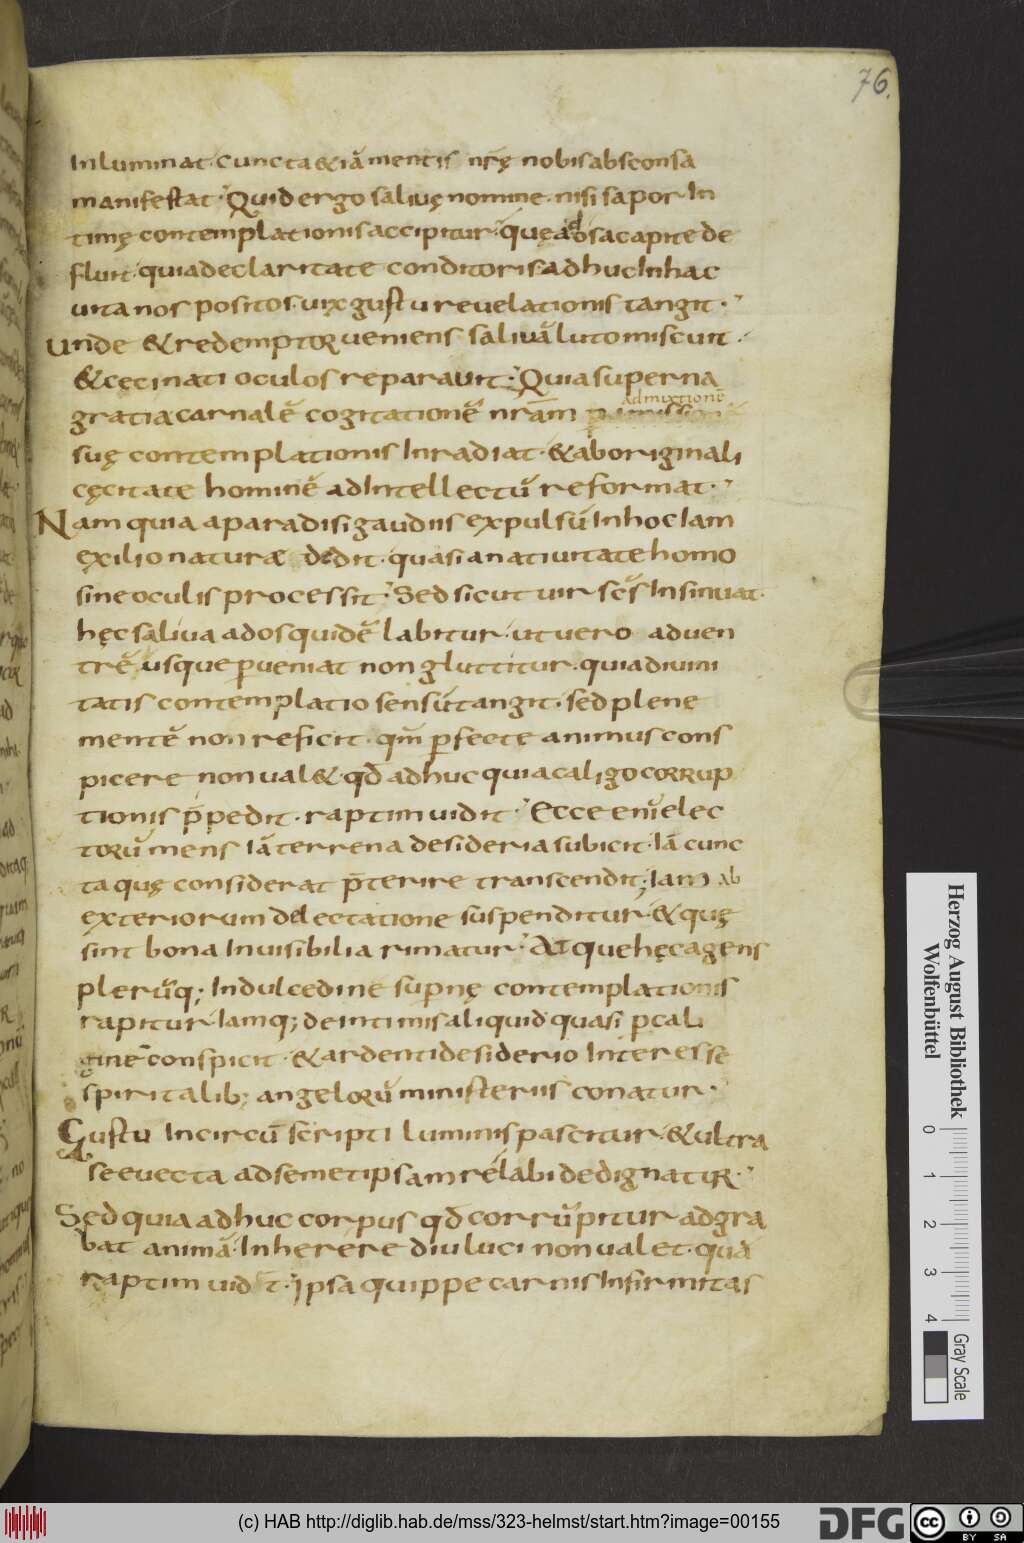 76.
Inluminat · cuncta & iā mentis nr̄ę nobis absconsa
manifestat · Quid ergo salivę nomine · nisi sapor In
timę contemplationis accipitur · quę ad os a capite de
fluit · quia de claritate conditoris adhuc In hac
uita nos positos · uix gustu reuelationis tangit ·
Unde & redemptor ueniens salivā luto miscuit ·
& cęci nati oculos reparauit · Quia superna
admixtione
gratia carnalē cogitationē nrām
suę contemplationis Inradiat · & ab originali
cęcitate hominē ad Intellectū reformat ·
Nam quia a paradisi gaudiis expulsū In hoc Iam
exilio naturæ dedit · quasi a natiuitate homo
sine oculis processit · Sed sicut uir scs̄ Insinuat ·
hęc saliua ad os quidē labitur · ut uero ad uen
trē usque p̄ueniat non gluttitur · quia diuini
tatis contemplatio sensū tangit · sed plene
mentē non reficit · qm̄ p̄fecte animus cons
picere non ual& · qđ adhuc quia caligo corrup
tionis p̄pedit · raptim uidit · Ecce enī elec
torū mens Iā terrena desideria subicit · Iā cunc
ta quę considerat p̄terire transcendit; Iam ab
exteriorum delectatione suspenditur · & quę
sint bona Inuisibilia rimatur · Atque hęc agens
plerūq; In dulcedine sup̄nę contemplationis
rapitur Iamq; de intimis aliquid quasi p̄ cali
gine conspicit · & ardenti desiderio Interesse
spiritalib; angelorū ministeriis conatur ·
Gustu Incircū scripti luminis pascitur · & ultra
se euecta ad semetipsam relabi dedignatur ·
Sed quia adhuc corpus qđ corrūpitur adgra
bat animā · Inherere diu luci non ualet · quā
raptim uidit · ipsa quippe carnis Infirmitas
Herzog August Bibliothek
Wolfenbüttel
0 1 2 3 4
Gray Scale
(c) HAB http://diglib.hab.de/mss/323-helmst/start.htm?image=00155
DFG
cc BY SA